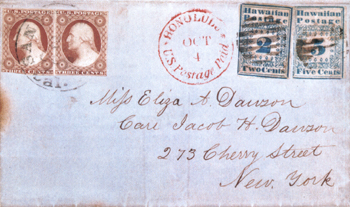 U.S. POSTAGE
THREE CENTS
U.S. POSTAGE
THREE CENTS
HONOLULU
OCT
4
U.S. Postage Paid
Hawaiian
Postage
2
Two Cents
Hawaiian
Postage
5
Five Cents
Miss Eliza A. Dawson
Care Jacob H. Dawson
273 Cherry Street
New. York